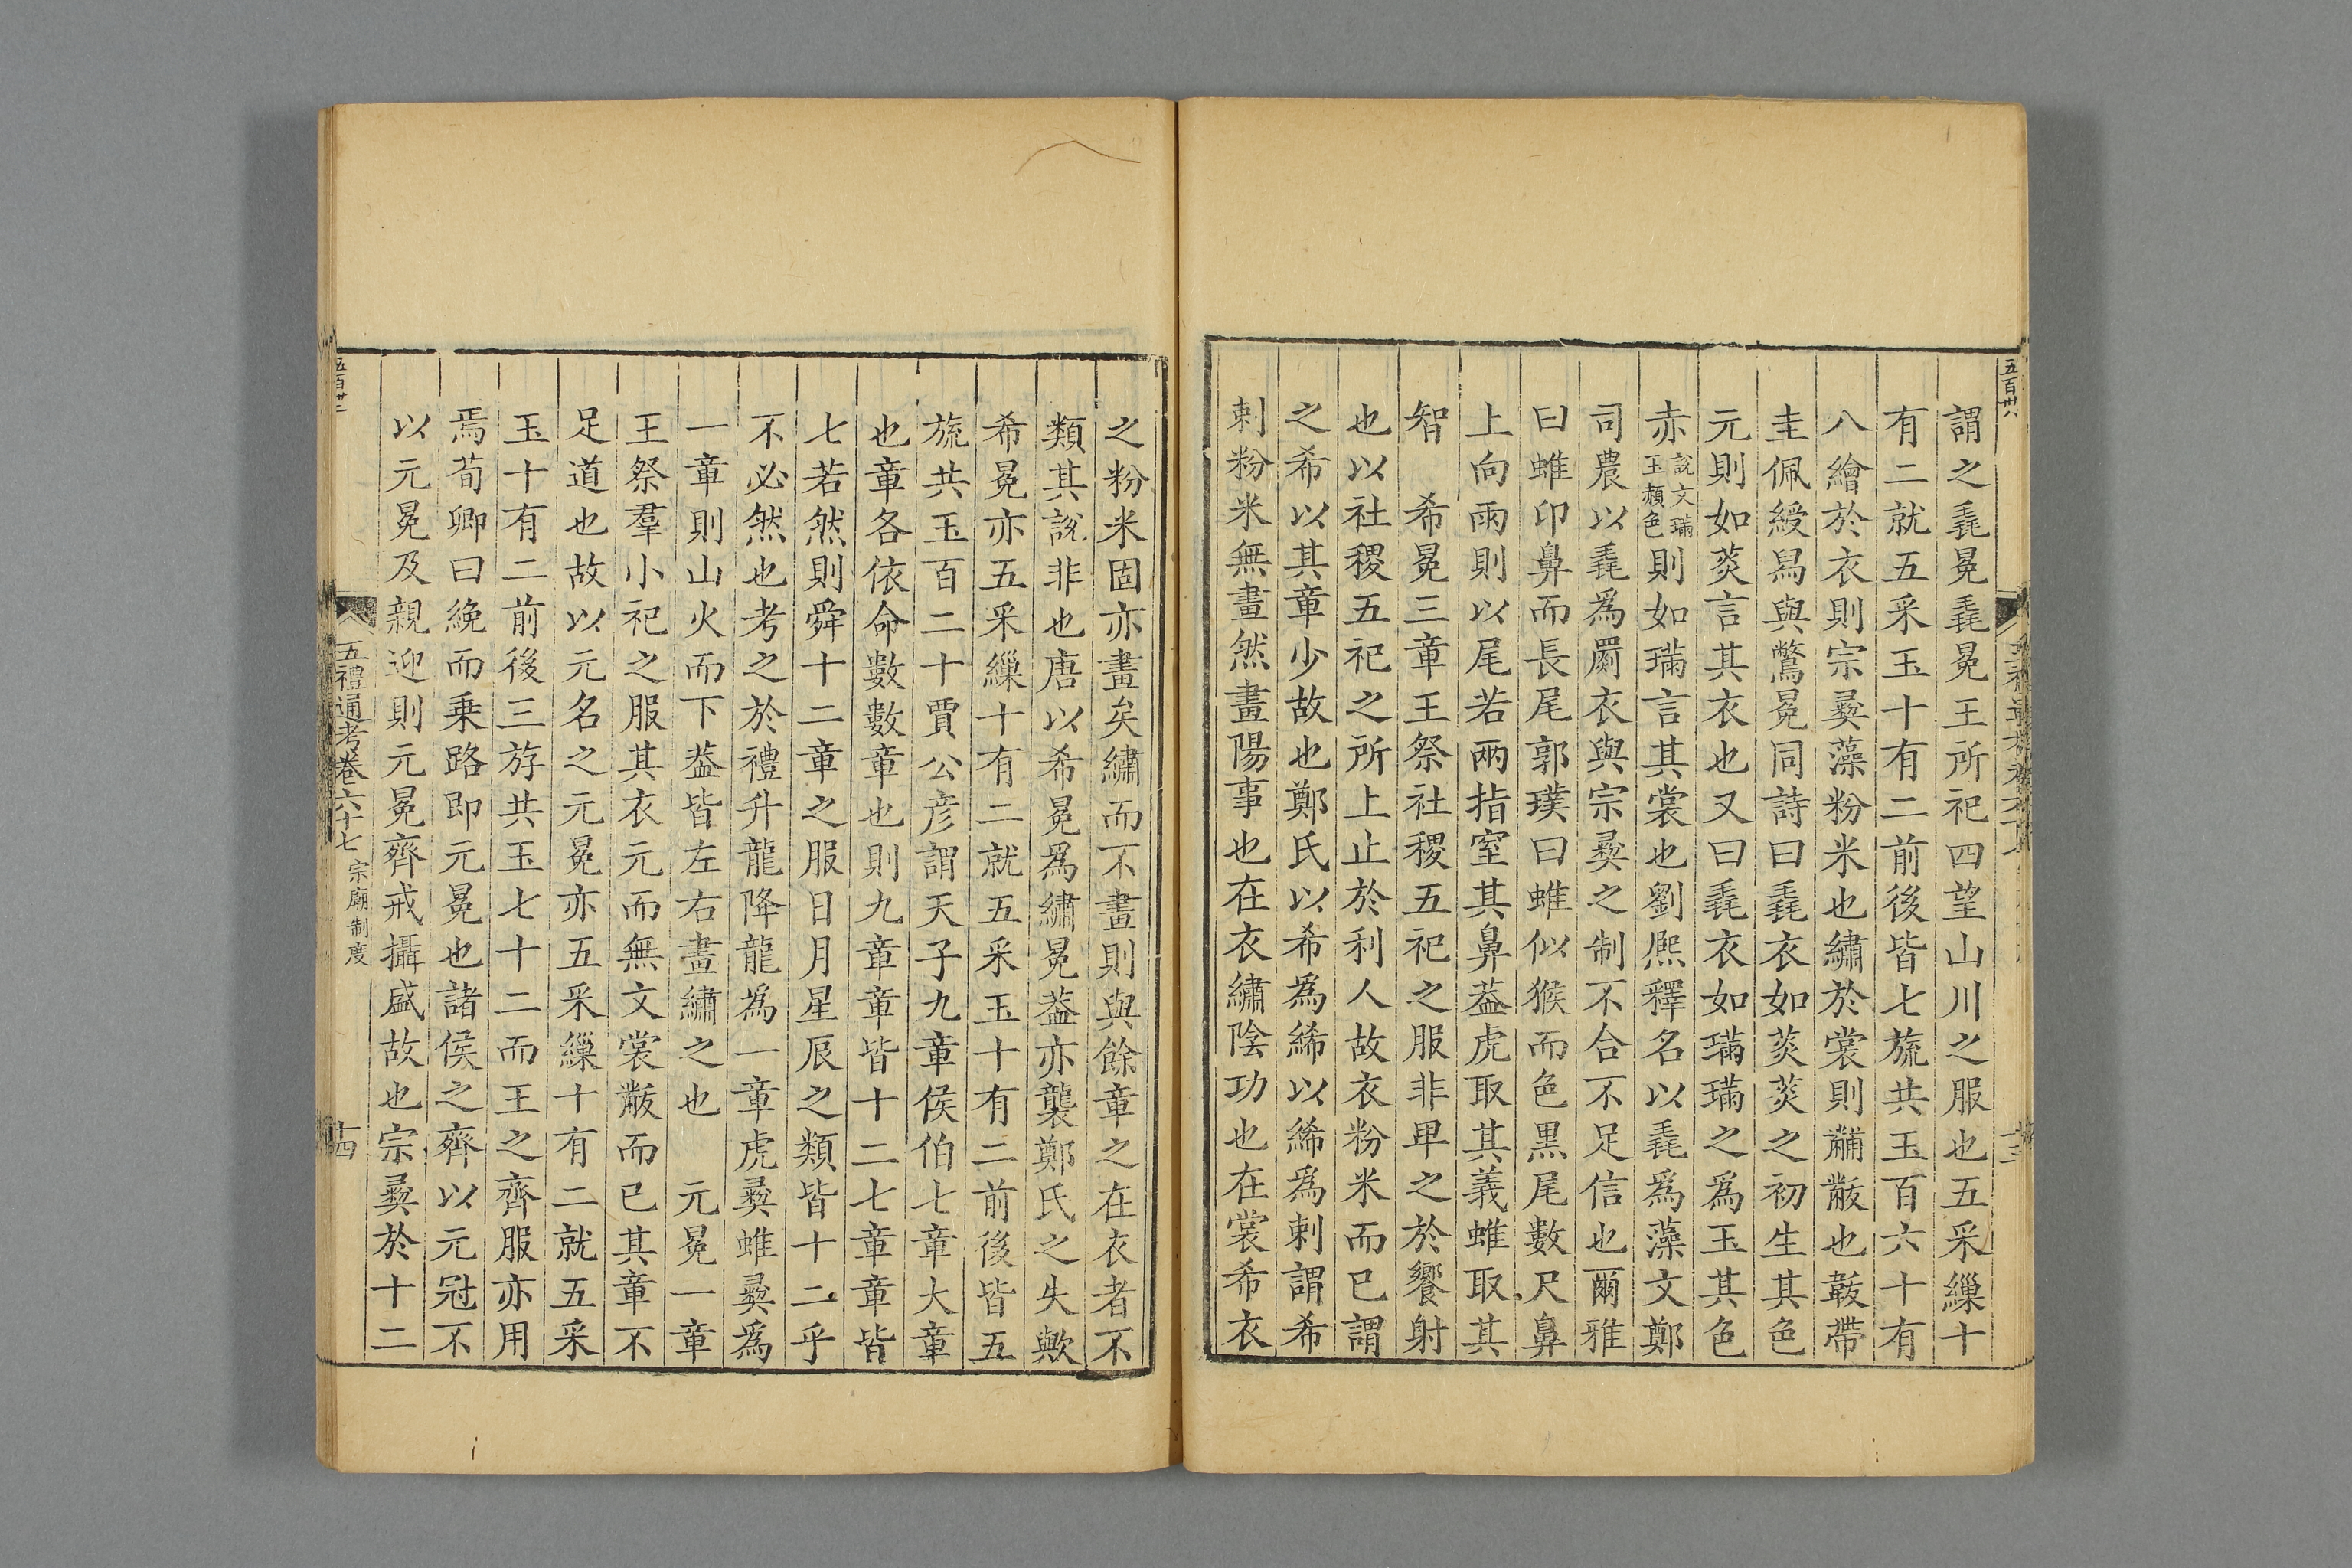 五百卅八
謂之毳冕毳冕王所祀四望山川之服也五采繅十
有二就五采玉十有二前後皆七旒共玉百六十有
八繪於衣則宗彜藻粉米也繡於裳則黼黻也韍帶
圭佩綬舄與鷩冕同詩曰毳衣如菼菼之初生其色
元則如菼言其衣也又曰毳衣如璊璊之為玉其色
赤說文璊玉赬色則如璊言其裳也劉熈釋名以毳為藻文鄭
司農以毳為罽衣與宗彜之制不合不足信也爾雅
曰蜼卬鼻而長尾郭璞曰蜼似猴而色黑尾數尺鼻
上向雨則以尾若兩指窒其鼻葢虎取其義蜼取其
智　希冕三章王祭社稷五祀之服非卑之於饗射
也以社稷五祀之所上止於利人故衣粉米而已謂
之希以其章少故也鄭氏以希為絺以絺為刺謂希
刺粉米無畫然畫陽事也在衣繡陰功也在裳希衣
之粉米固亦畫矣繡而不畫則與餘章之在衣者不
類其說非也唐以希冕為繡冕葢亦襲鄭氏之失歟
希冕亦五采繅十有二就五采玉十有二前後皆五
旒共玉百二十賈公彦謂天子九章侯伯七章大章
也章各依命數數章也則九章章皆十二七章章皆
七若然則舜十二章之服日月星辰之類皆十二乎
不必然也考之於禮升龍降龍為一章虎彜蜼彜為
一章則山火而下葢皆左右畫繡之也　元冕一章
王祭羣小祀之服其衣元而無文裳黻而已其章不
足道也故以元名之元冕亦五采繅十有二就五采
玉十有二前後三斿共玉七十二而王之齊服亦用
焉荀卿曰絻而乗路即元冕也諸侯之齊以元冠不
以元冕及親迎則元冕齊戒攝盛故也宗彜於十二
五禮通考卷六十七 宗廟制度
十四